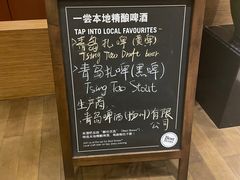 一尝本地精酿啤酒
TAP INTO LOCAL FAVOURITES
青岛扎啤(黄啤)
Tsing Tao Draft beer
青岛扎啤(黑啤)
Tsing Tao Stout
生产商:
青岛啤酒(扬州)有限
公司